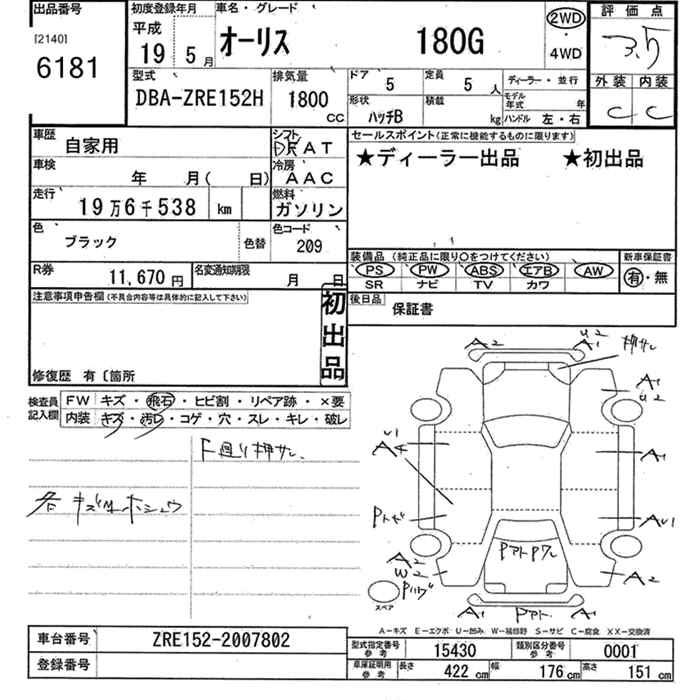 出品番号
[2140]
6181
初度登録年月
平成
19 5月
車名・グレード
オーリス 180G
2WD
・
4WD
評価点
3.5
外装 内装
C C
型式
DBA-ZRE152H
排気量
1800
CC
ドア 5
定員 5 人
形状 ハッチB
積載 kg
ディーラー・並行
モデル年式 年
ハンドル 左・右
車歴 自家用
シフト
AT
車検 年 月( 日)
冷房
AAC
走行 19万6千538 km
燃料
ガソリン
色 ブラック
色替
色コード
209
R券 11,670円
名変通知期限 月 日
セールスポイント(正常に機能するものに限ります)
★ディーラー出品 ★初出品
装備品(純正品に限り○をつけてください)
PS PW ABS エアB AW
SR ナビ TV カワ
新車保証書
有・無
後日品 保証書
注意事項申告欄(不具合内容等は具体的に記入して下さい)
初出品
修復歴 有〔箇所
検査員記入欄
FW キズ・飛石・ヒビ割・リペア跡・×要
内装 キズ・汚レ・コゲ・穴・スレ・キレ・破レ
F廻り押サレ
各キズ凹ホシュウ
A2
U2
A1
押サレ
A1
U2
U1
A4
A1
Pトビ
AU1
PアトPワレ
A2
W2
Pハゲ
A2
スペア
A1
Pアト
A1
A-キズ E-エクボ U-凹み W-補修跡 S-サビ C-腐食 XX-交換済
車台番号 ZRE152-2007802
登録番号
型式指定番号参考 15430
類別区分番号参考 0001
車庫証明用参考
長さ 422 cm
幅 176 cm
高さ 151 cm